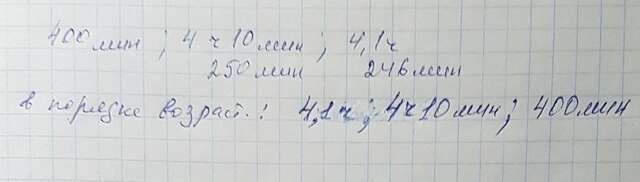 400 мин ; 4 ч 10 мин ; 4,1 ч
250 мин 246 мин
в порядке возраст.: 4,1 ч ; 4 ч 10 мин ; 400 мин